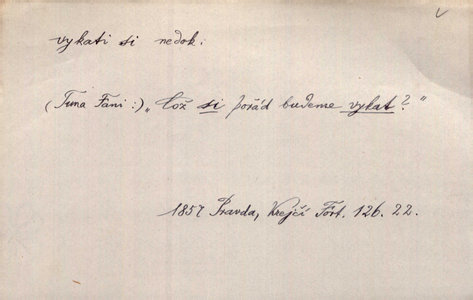 vykati si nedok.
(Tuna Fáni:) „Což si pořád budeme vykat?“
1857 Pravda, Krejčí Fort. 126. 22.